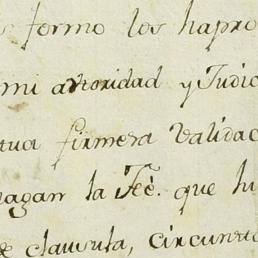 formo los hapro
mi autoridad y Judic
tua firmera Validac
hagan la Feé. que hi
de clausula, circunst